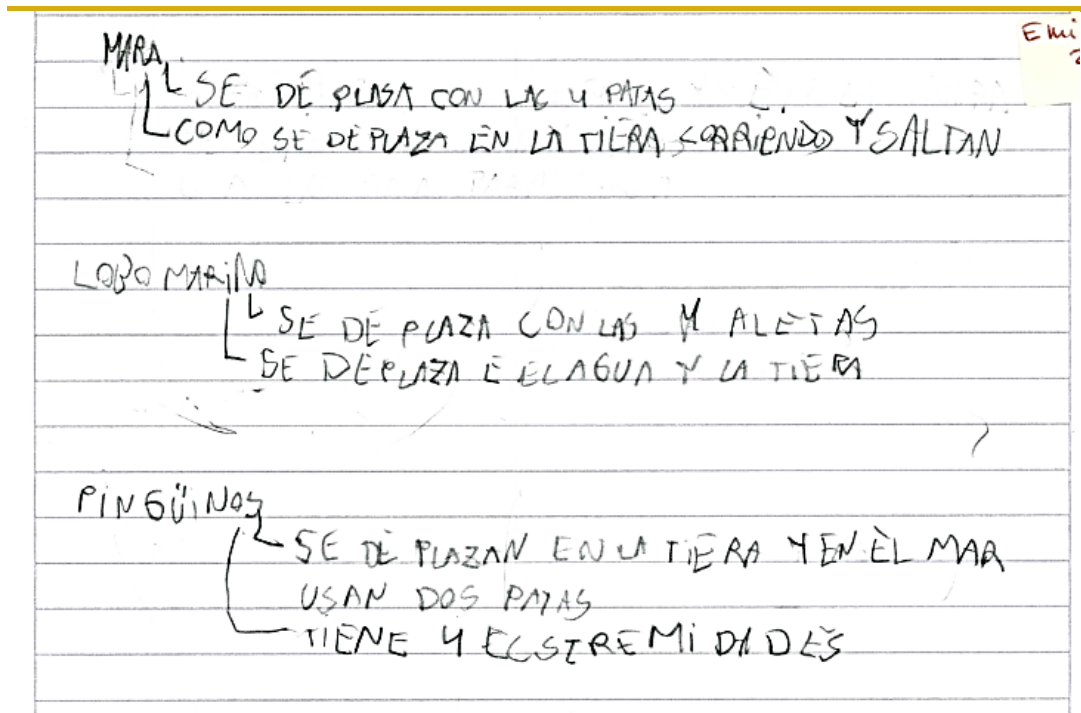 Emi
MARA
SE DE PLASA CON LAS 4 PATAS
COMO SE DEPLAZA EN LA TIERA CORRIENDO Y SALTAN
LOBO MARiNO
SE DE PLAZA CON LAS 4 ALETAS
SE DEPLAZA E EL AGUA Y LA TIERA
PiNGÜiNOS
SE DE PLAZAN EN LA TIERA Y EN EL MAR
USAN DOS PATAS
TIENE 4 ECSTREMiDADES